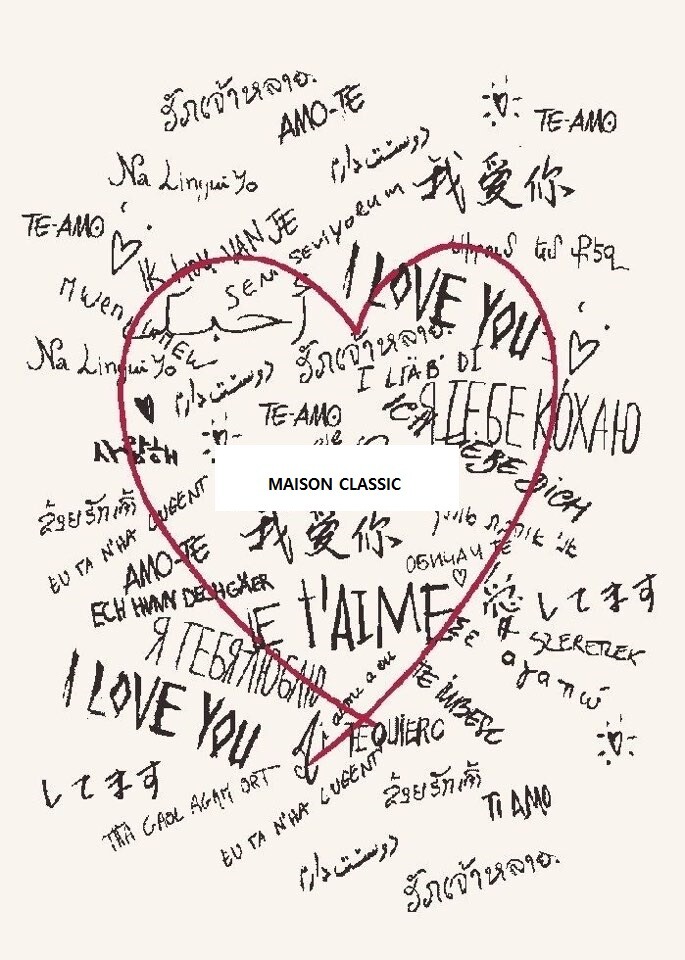 ฮักเจ้าหลาย.
AMO-TE
TE-AMO
دوستت دارم
Na Lingui Yo
我爱你
TE-AMO
IK HOU VAN JE
SENI SEVIYORUM
I LOVE YOU
أحبك
ฮักเจ้าหลาย.
Na Lingui Yo
I LIÄB DI
دوستت دارم
TE-AMO
ICH LIEBE DICH
Я ТЕБЕ КОХАЮ
사랑해
MAISON CLASSIC
ข้อยฮักเจ้า
EU TA N'HA LUGENT
我爱你
AMO-TE
ОБИЧАМ ТЕ
ECH HUNN DECH GÄER
JE t'AIME
愛してます
Я ТЕБЯ ЛЮБЛЮ
SZERETLEK
σε αγαπώ
I LOVE YOU
TE IUBESC
TE QUIERO
してます
THA GAOL AGAM ORT
EU TA N'HA LUGENT
ข้อยฮักเจ้า
TI AMO
دوستت دارم
ฮักเจ้าหลาย.